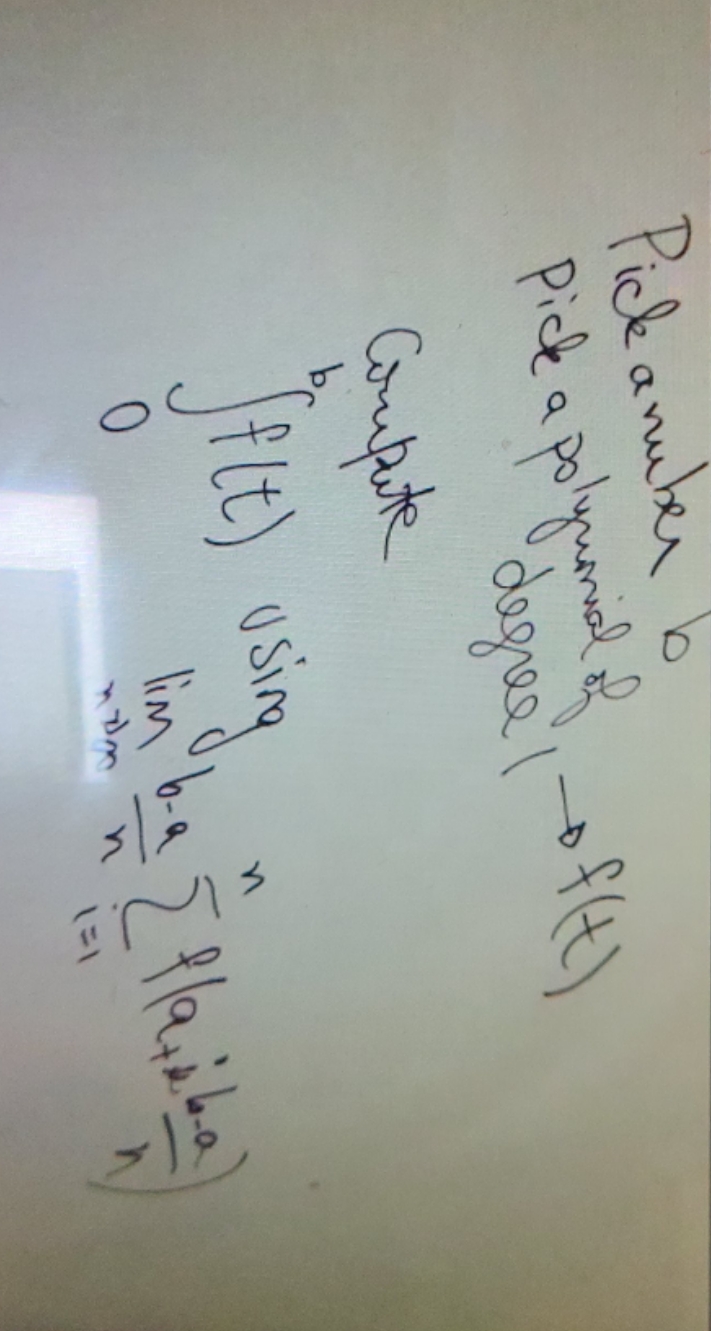 Pick a number b
Pick a polynomial of
degree 1 → f(t)
Compute
∫₀ᵇ f(t) using
lim n→∞ b-a/n ∑ i=1 n f(a+i b-a/n)